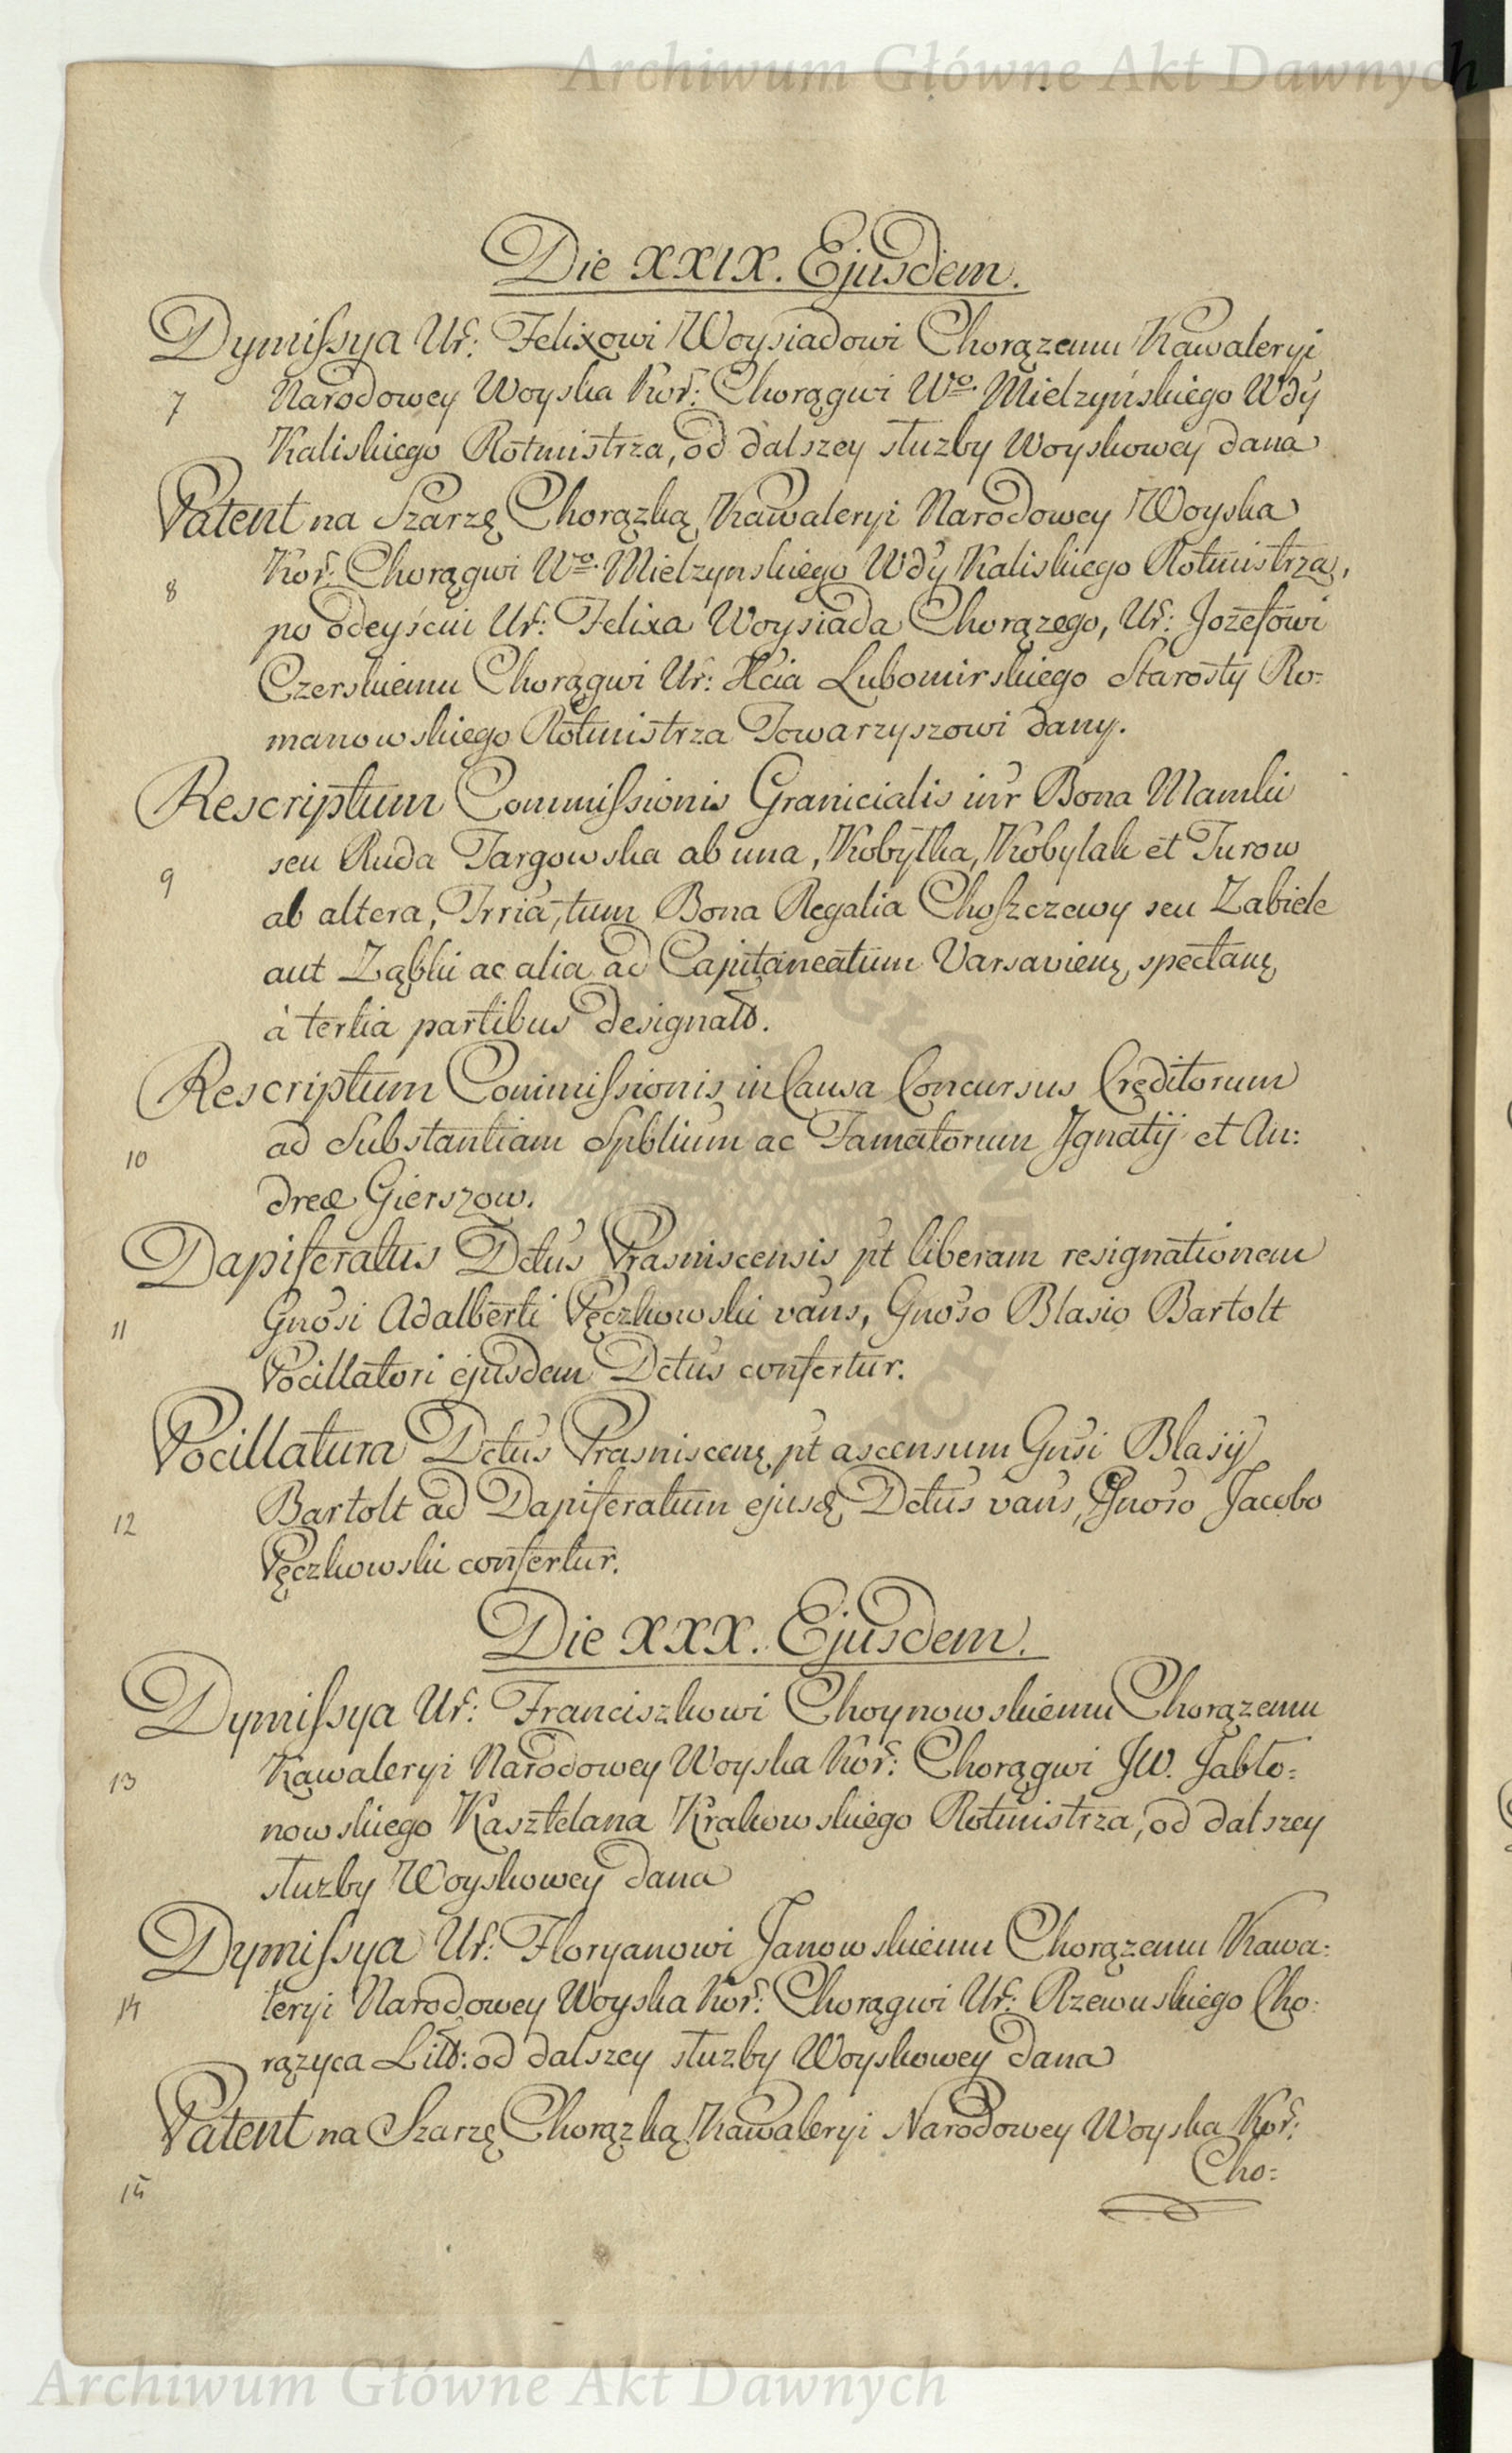 Archiwum Główne Akt Dawnych
Die XXIX. Ejusdem.
Dymissya Ur: Felixowi Woysiadowi Chorązemu Kawaleryi
7 Narodowey Woyska Kor: Chorągwi Wo. Mielzyńskiego Wdy
Kaliskiego Rotmistrza, od dalszey słuzby Woyskowey dana
Patent na Szarzę Chorązką Kawaleryi Narodowey Woyska
8 Kor: Chorągwi Wo. Mielzynskiego Wdy Kaliskiego Rotmistrza,
po odeysciu Ur: Felixa Woysiada Chorązego, Ur: Jozefowi
Czerskiemu Chorągwi Ur: Xcia Lubomirskiego Starosty Ro=
manowskiego Rotmistrza Towarzyszowi dany.
Rescriptum Commissionis Granicialis inr Bona Mamki
9 seu Ruda Targowska ab una, Kobyłka, Kobylak et Turow
ab altera, Trria, tum Bona Regalia Choszczewy seu Zabiele
aut Ząbki ac alia ad Capitaneatum Varsavien, spectan,
à tertia partibus designato.
Rescriptum Commissionis in Causa Concursus Creditorum
10 ad Substantiam Spblium ac Famatorum Jgnatij et An:
dreæ Gierszow.
Dapiferatus Dctus Prasniscensis pt liberam resignationem
11 Gnosi Adalberti Pęczkowski vans, Gnoso Blasio Bartolt
Pocillatori ejusdem Dctus confertur.
Pocillatura Dctus Prasniscen, pt ascensum Gnsi Blasij
12 Bartolt ad Dapiferatum ejusd, Dctus vans, Gnoso Jacobo
Pęczkowski confertur.
Die XXX. Ejusdem.
Dymissya Ur: Franciszkowi Choynowskiemu Chorązemu
13 Kawaleryi Narodowey Woyska Kor: Chorągwi JW. Jabło=
nowskiego Kasztelana Krakowskiego Rotmistrza, od dalszey
słuzby Woyskowey dana
Dymissya Ur: Floryanowi Janowskiemu Chorązemu Kawa:
14 leryi Narodowey Woyska Kor: Chorągwi Ur: Rzewuskiego Cho:
rązyca Litt: od dalszey słuzby Woyskowey dana
Patent na Szarzę Chorązką Kawaleryi Narodowey Woyska Kor:
15 Cho=
Archiwum Główne Akt Dawnych